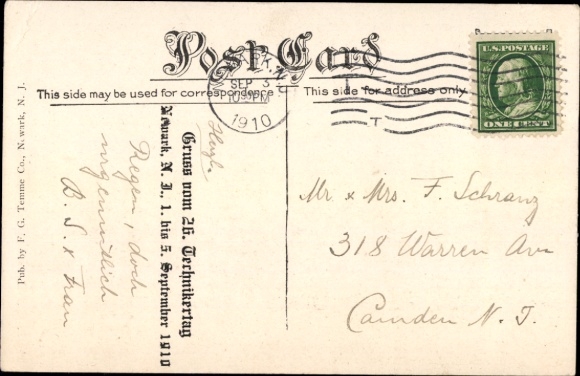 Post Card
This side may be used for correspondence
This side for address only
NEWARK, N.J.
SEP 3
10-PM
1910
T
U.S. POSTAGE
ONE CENT
Pub. by F. G. Temme Co., Newark, N. J.
Gruss vom 26. Technikertag
Newark, N. J., 1. bis 5. September 1910
Regen, doch
urgemütlich
B. S. & Frau
Mr & Mrs. F. Schranz
318 Warren Ave
Camden N. J.